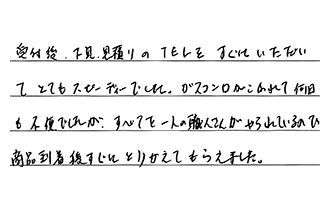 受付後、下見、見積りのTELをすぐにいただい
て とてもスピーディーでした。ガスコンロがこわれて何日
も不便でしたが、すべてを一人の職人さんがやられているので
商品到着後すぐにとりかえてもらえました。